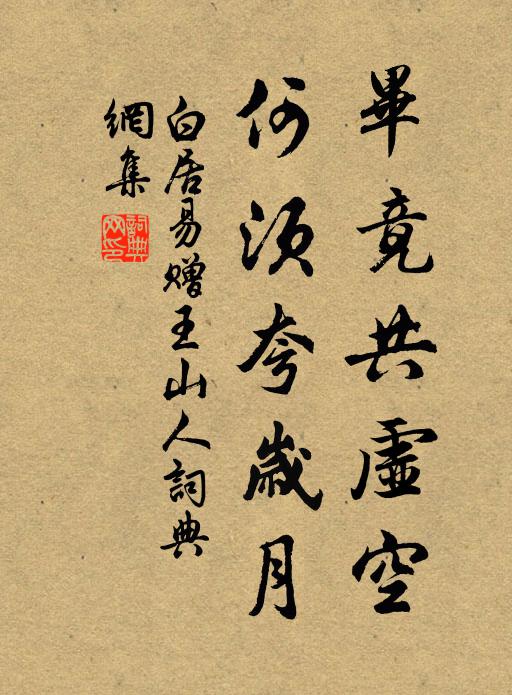 畢竟共虛空
何須夸歲月
白居易贈王山人詞典
網集
詞典
网印